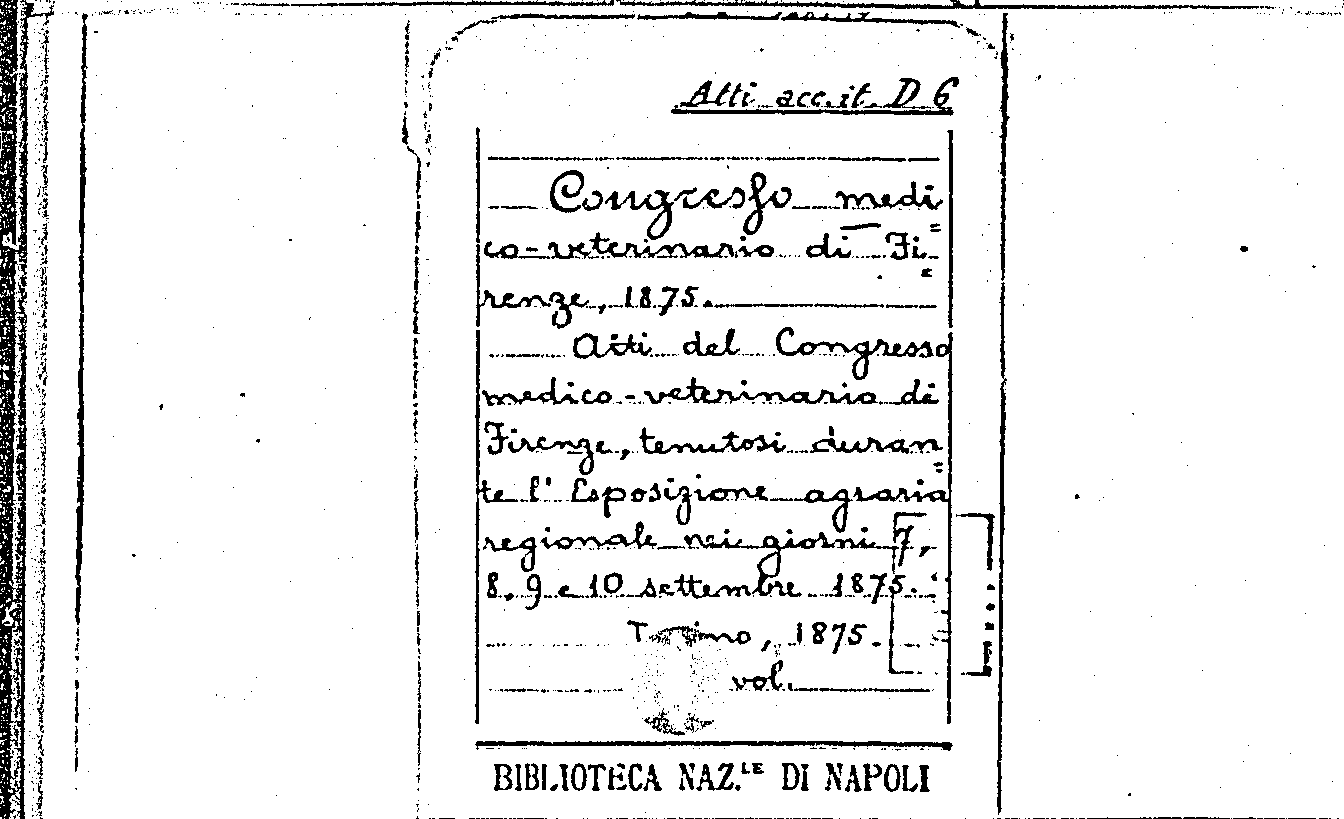 Atti acc. it. D 6
Congresso medi=
co-veterinario di Fi=
renze, 1875.
Atti del Congresso
medico-veterinario di
Firenze, tenutosi duran=
te l'Esposizione agraria
regionale nei giorni 7,
8, 9 e 10 settembre 1875.
Torino, 1875.
vol.
BIBLIOTECA NAZ.LE DI NAPOLI